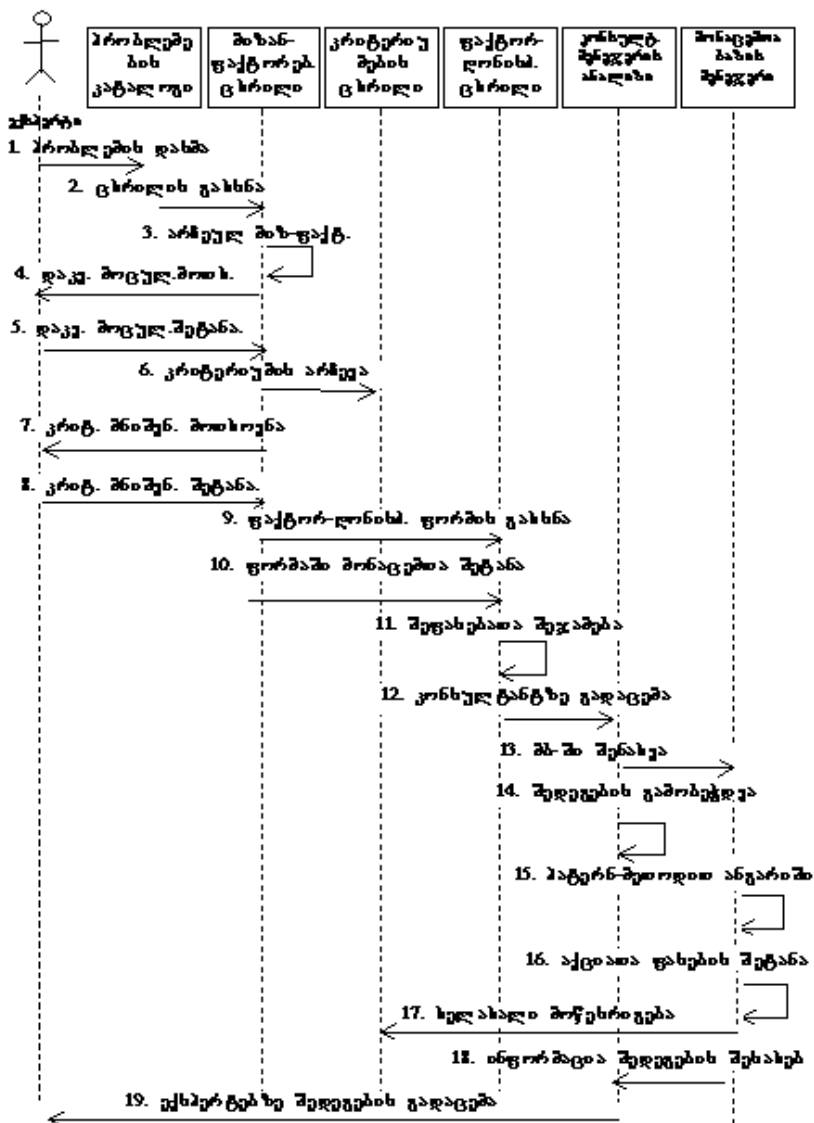 პრობლემე
ბის
კატალოგი
მიზან-
ფაქტორებ.
ცხრილი
კრიტერიუ
მების
ცხრილი
ფაქტორ-
ღონისძ.
ცხრილი
კონსულტ.
მენეჯერის
ანალიზი
მონაცემთა
ბაზის
მენეჯერი
ექსპერტი
1. პრობლემის დასმა
2. ცხრილის გახსნა
3. არჩეულ მიზ-ფაქტ.
4. დაკვ. მოცულ.მოთხ.
5. დაკვ. მოცულ.შეტანა.
6. კრიტერიუმის არჩევა
7. კრიტ. მნიშვნ. მოთხოვნა
8. კრიტ. მნიშვნ. შეტანა.
9. ფაქტორ-ღონისძ. ფორმის გახსნა
10. ფორმაში მონაცემთა შეტანა
11. შეფასებათა შეჯამება
12. კონსულტანტზე გადაცემა
13. მბ-ში შენახვა
14. შედეგების გამობეჭდვა
15. პატერნ-მეთოდით ანგარიში
16. აქციათა ფასების შეტანა
17. ხელახალი მოწესრიგება
18. ინფორმაცია შედეგების შესახებ
19. ექსპერტებზე შედეგების გადაცემა